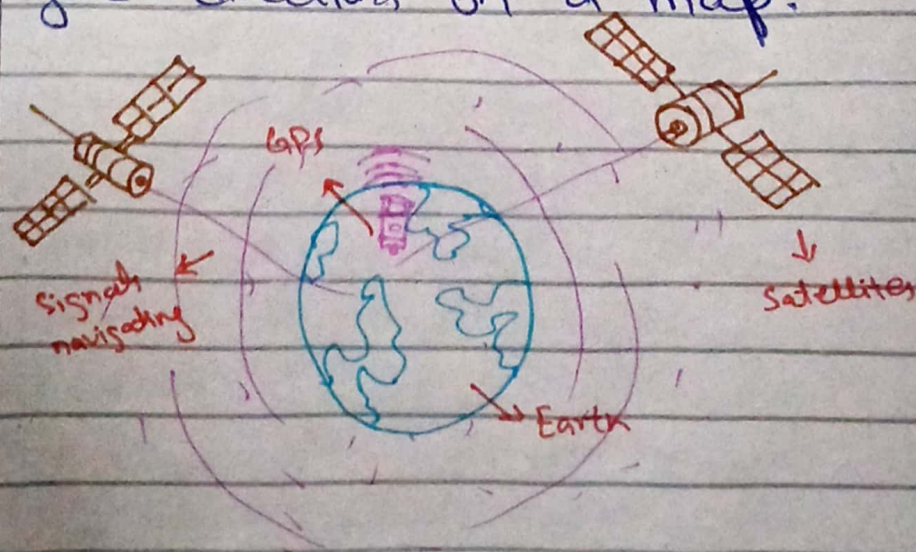 creation on a map.
GPS
Signals
navigating
Satellites
Earth